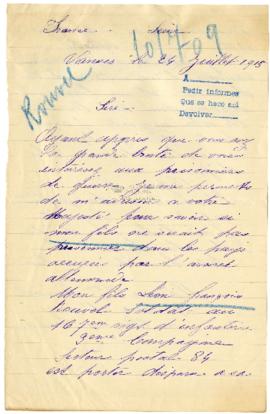 France - Seine
101709
Vanves le 24 Juillet 1915
Rouvel
A
Pedir informes
Que se hace así
Devolver
Sire
Ayant appris que vous avez
la grande bonté de vous
intéresser aux prisonniers
de guerre je me permets
de m'adresser a votre
Majesté pour savoir si
mon fils ne serait pas
prisonnier dans les pays
occupés par l'armée
allemande
Mon fils Léon François
Rouvel soldat au
167ème regt d'infanterie
9ème Compagnie
Secteur postal 84
est porté disparu a